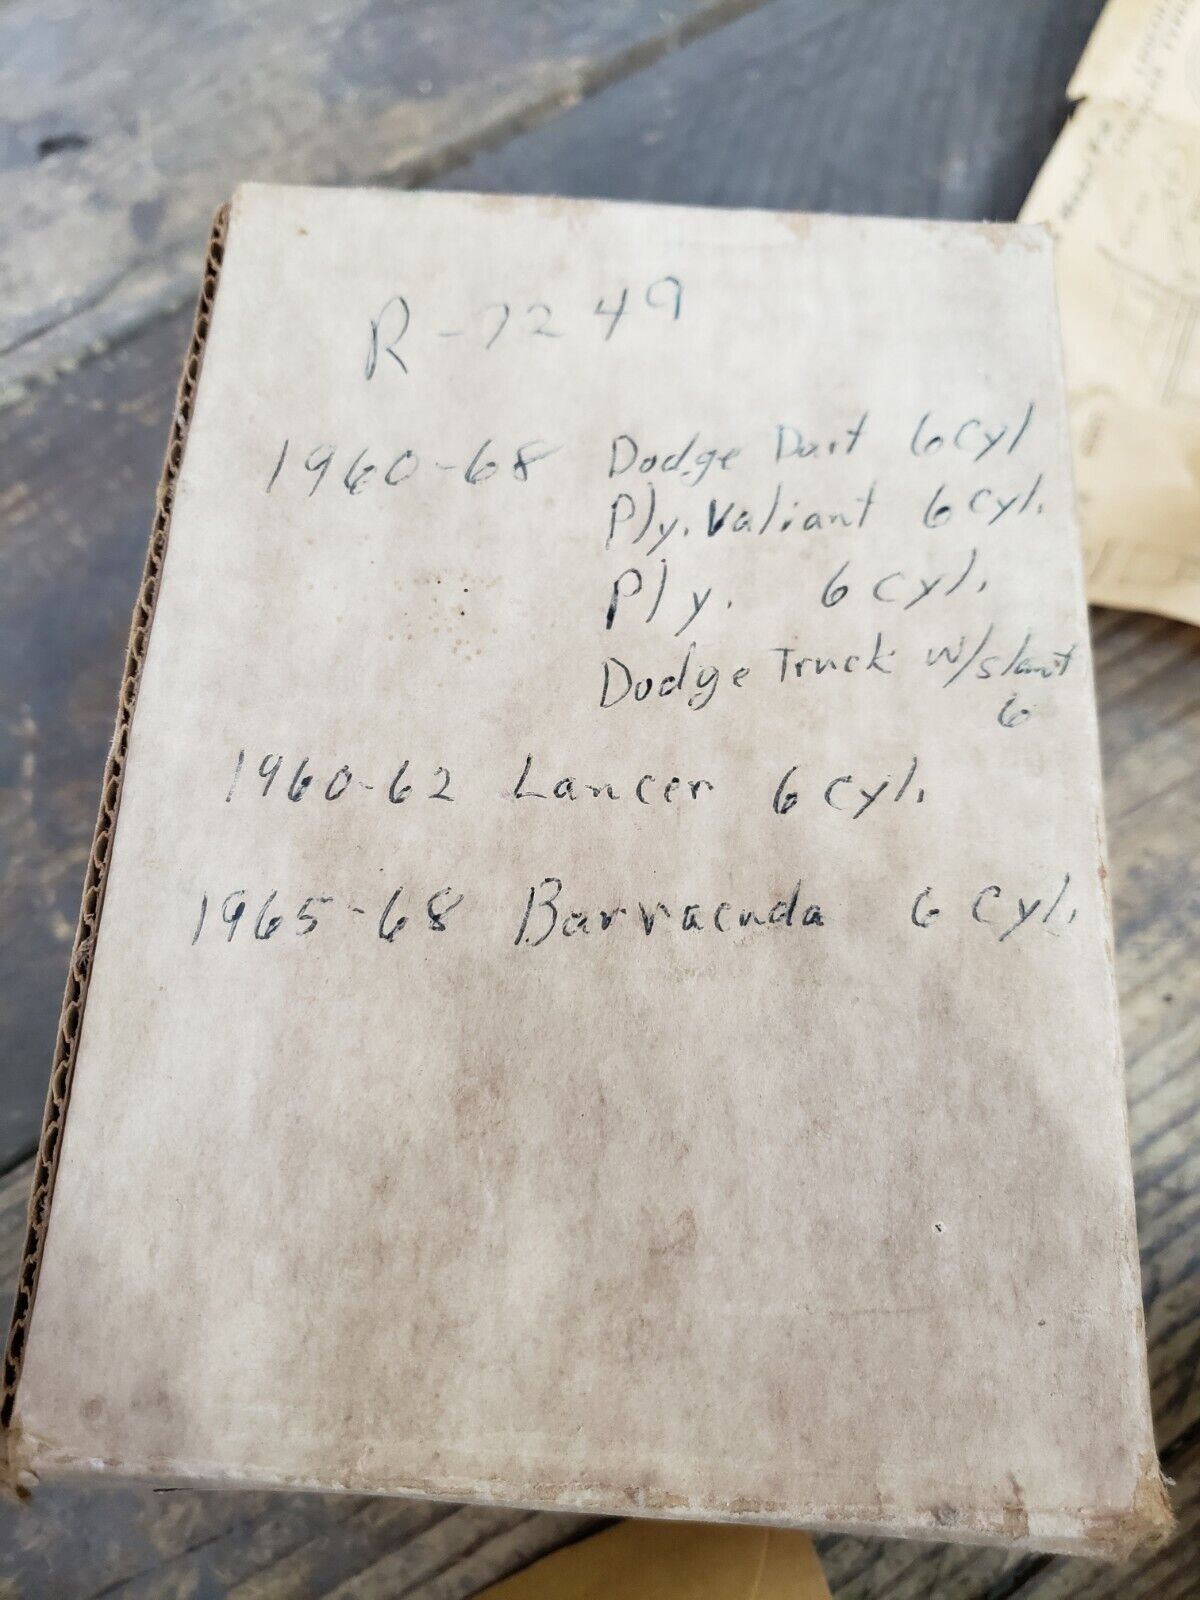 R-7249
1960-68 Dodge Dart 6 Cyl
Ply. Valiant 6 Cyl.
Ply. 6 Cyl.
Dodge Truck w/slant
6
1960-62 Lancer 6 Cyl.
1965-68 Barracuda 6 Cyl.